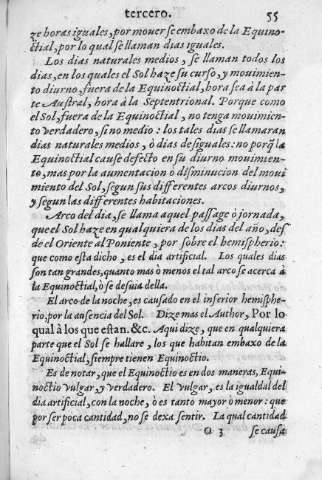 tercero. 55
ze horas iguales, por mouerse embaxo de la Equino-
ctial, por lo qual se llaman dias iguales.
Los dias naturales medios, se llaman todos los
dias, en los quales el Sol haze su curso, y mouimien-
to diurno, fuera de la Equinoctial, hora sea à la par
te Austral, hora à la Septentrional. Porque como
el Sol, fuera de la Equinoctial, no tenga mouimien-
to verdadero, si no medio: los tales dias se llamaran
dias naturales medios, ò dias desiguales: no porq̃ la
Equinoctial cause defecto en su diurno mouimien-
to, mas por la aumentacion ò disminucion del moui
miento del Sol, segun sus differentes arcos diurnos,
y segun las differentes habitaciones.
Arco del dia, se llama aquel passage ò jornada,
que el Sol haze en qualquiera de los dias del año, des
de el Oriente al Poniente, por sobre el hemispherio:
que como esta dicho, es el dia artificial. Los quales dias
son tan grandes, quanto mas ò menos el tal arco se acerca à
la Equinoctial, ò se desuia della.
El arco de la noche, es causado en el inferior hemisphe-
rio, por la ausencia del Sol. Dize mas el Author, Por lo
qual à los que estan. &c. Aqui dize, que en qualquiera
parte que el Sol se hallare, los que habitan embaxo de la
Equinoctial, siempre tienen Equinoctio.
Es de notar, que el Equinoctio es en dos maneras, Equi-
noctio vulgar, y verdadero. El vulgar, es la igualdad del
dia artificial, con la noche, ò es tanto mayor ò menor: que
por ser poca cantidad, no se dexa sentir. La qual cantidad
G 3 se causa